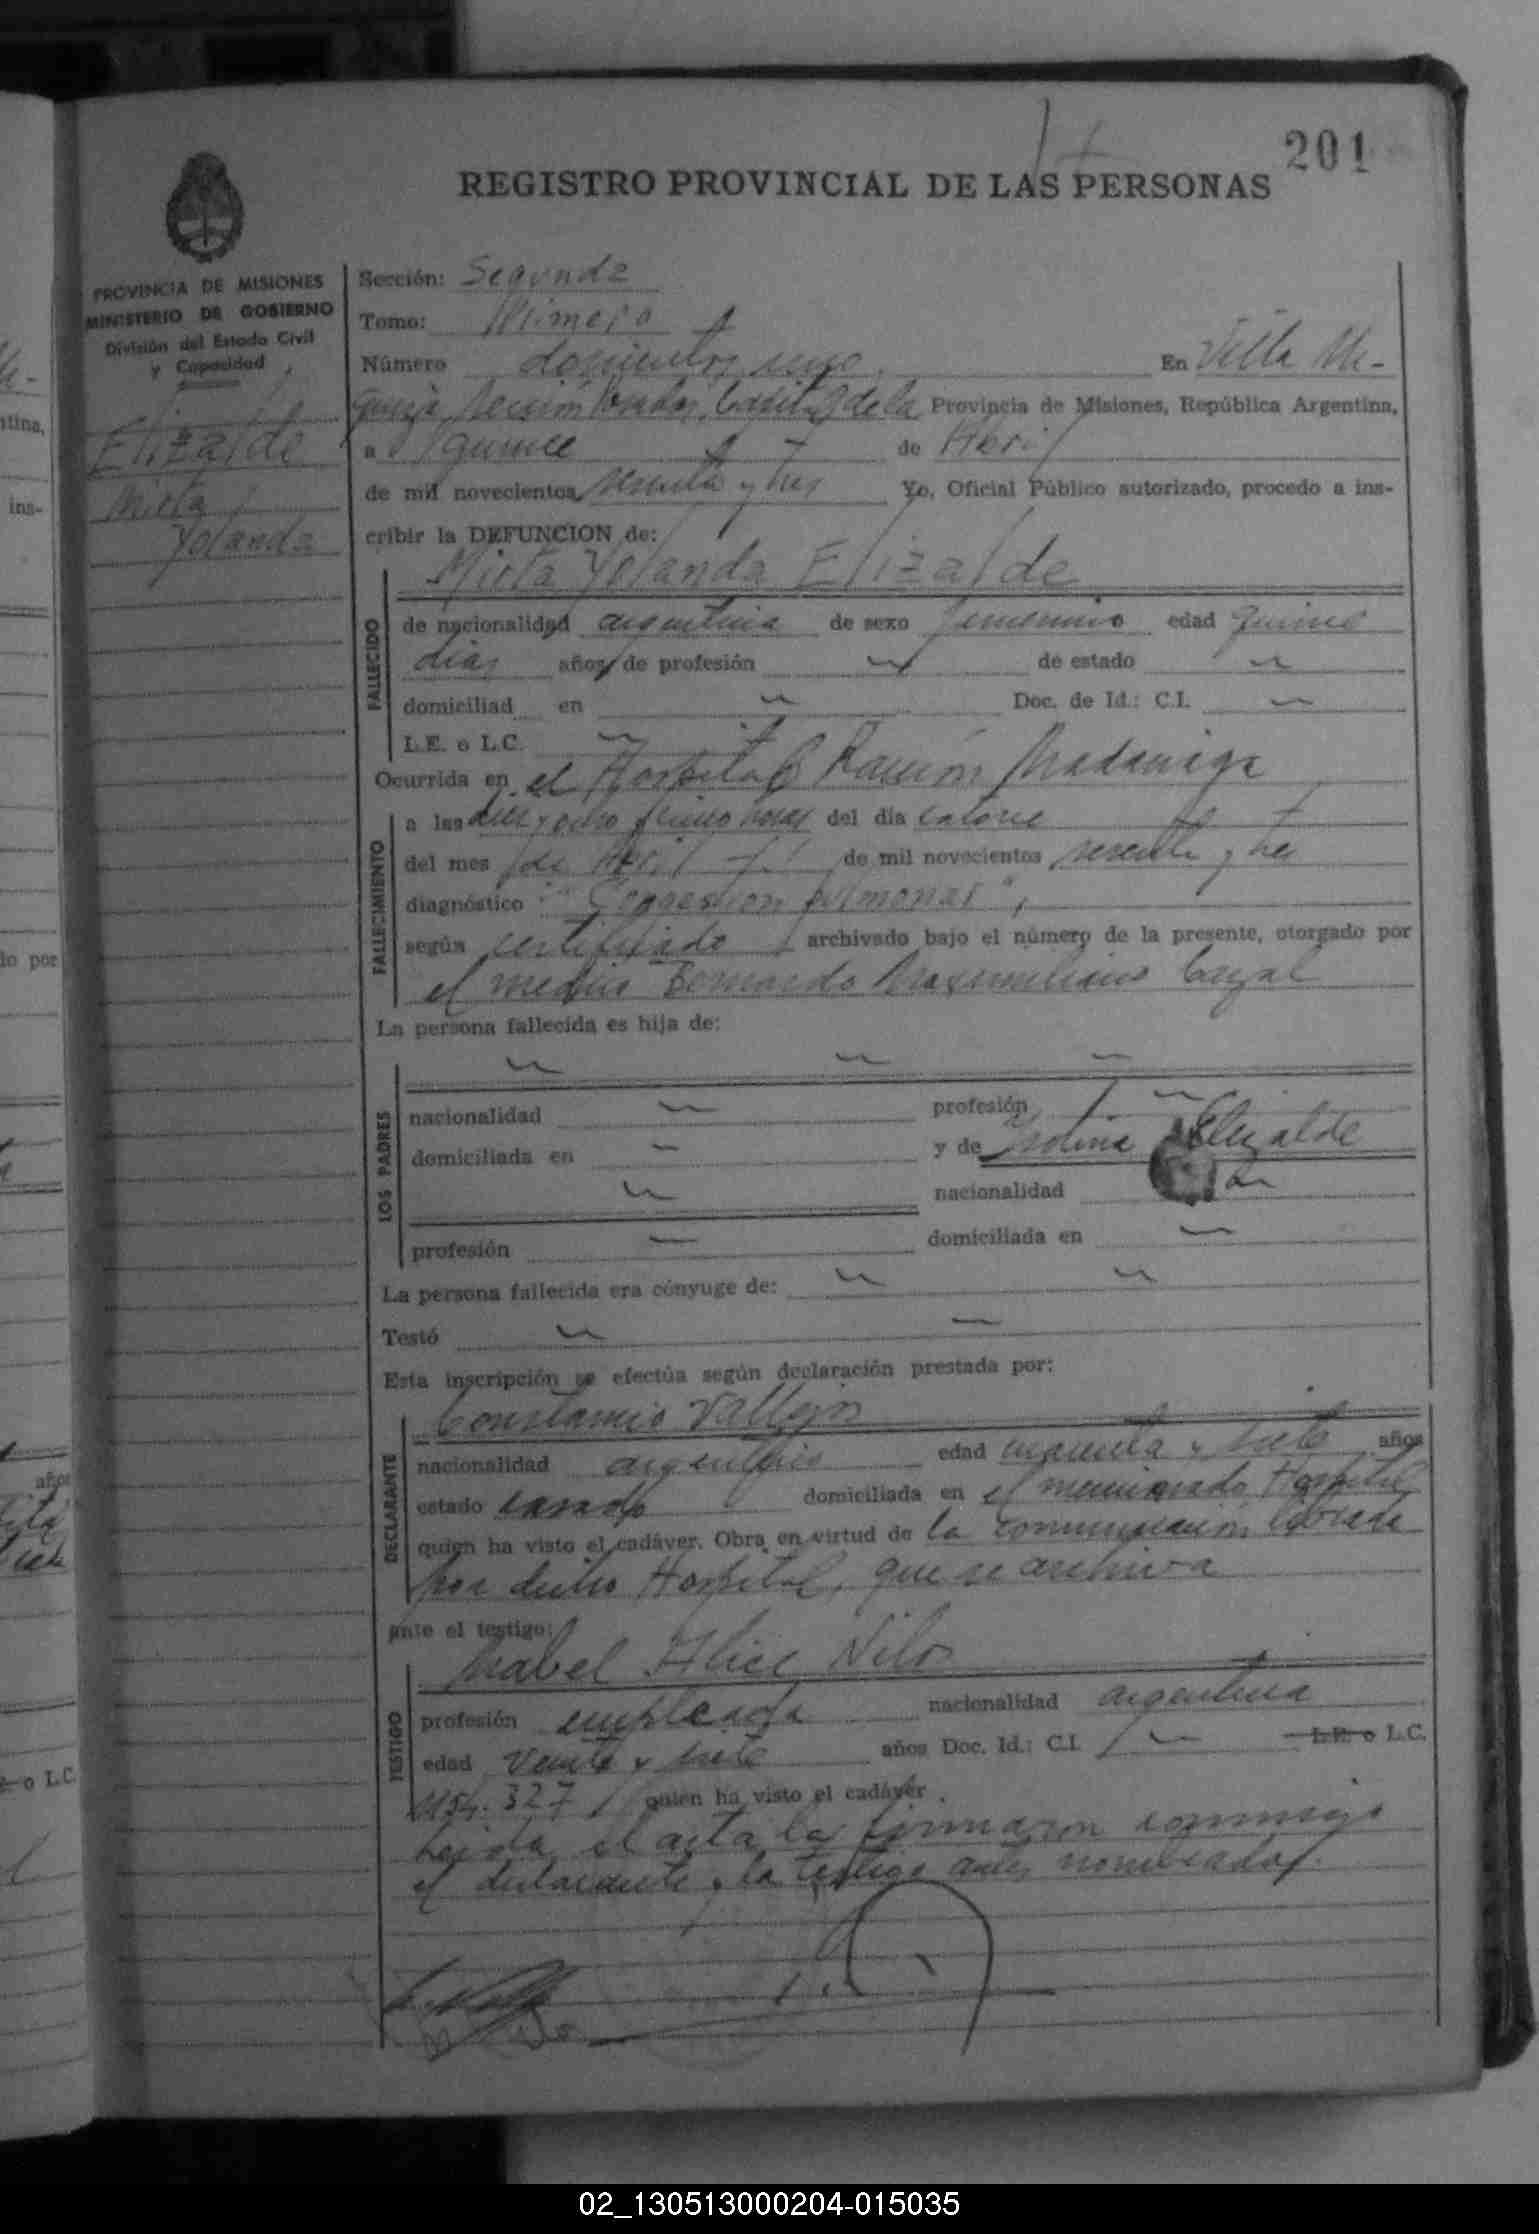 201
REGISTRO PROVINCIAL DE LAS PERSONAS
PROVINCIA DE MISIONES
MINISTERIO DE GOBIERNO
División del Estado Civil
y Capacidad
Elizalde
Mirta
Yolanda
Sección: Segunda
Tomo: Primero
Número doscientos uno. En Villa Ur-
quiza, sección Posadas, Capital de la Provincia de Misiones, República Argentina,
a quince de Abril
de mil novecientos sesenta y tres Yo, Oficial Público autorizado, procedo a ins-
cribir la DEFUNCION de:
Mirta Yolanda Elizalde
FALLECIDO
de nacionalidad argentina de sexo femenino edad quince
dias años de profesión de estado
domiciliad en Doc. de Id.: C.I.
L.E. o L.C.
Ocurrida en el Hospital Ramón Madariaga
FALLECIMIENTO
a las diez y ocho y cinco horas del día catorce
del mes de Abril de mil novecientos sesenta y tres
diagnóstico: "Congestión pulmonar",
según certificado archivado bajo el número de la presente, otorgado por
el medico Bernardo Maximiliano
La persona fallecida es hija de:
LOS PADRES
nacionalidad profesión
domiciliada en y de Elizalde
nacionalidad
profesión domiciliada en
La persona fallecida era cónyuge de:
Testó
Esta inscripción se efectúa según declaración prestada por:
DECLARANTE
Constancio Vallejos
nacionalidad argentino edad cuarenta y siete años
estado casado domiciliada en el mencionado Hospital
quien ha visto el cadáver. Obra en virtud de la comunicación librada
por dicho Hospital, que se archiva
ante el testigo:
TESTIGO
Mabel Alice Nilos
profesión empleada nacionalidad argentina
edad veinte y siete años Doc. Id.: C.I. L.E. o L.C.
327 quien ha visto el cadáver.
Leida el acta la firmaron conmigo
el declarante y la testigo antes nombrados.
ntina,
ins-
do por
años
o L.C.
02_130513000204-015035